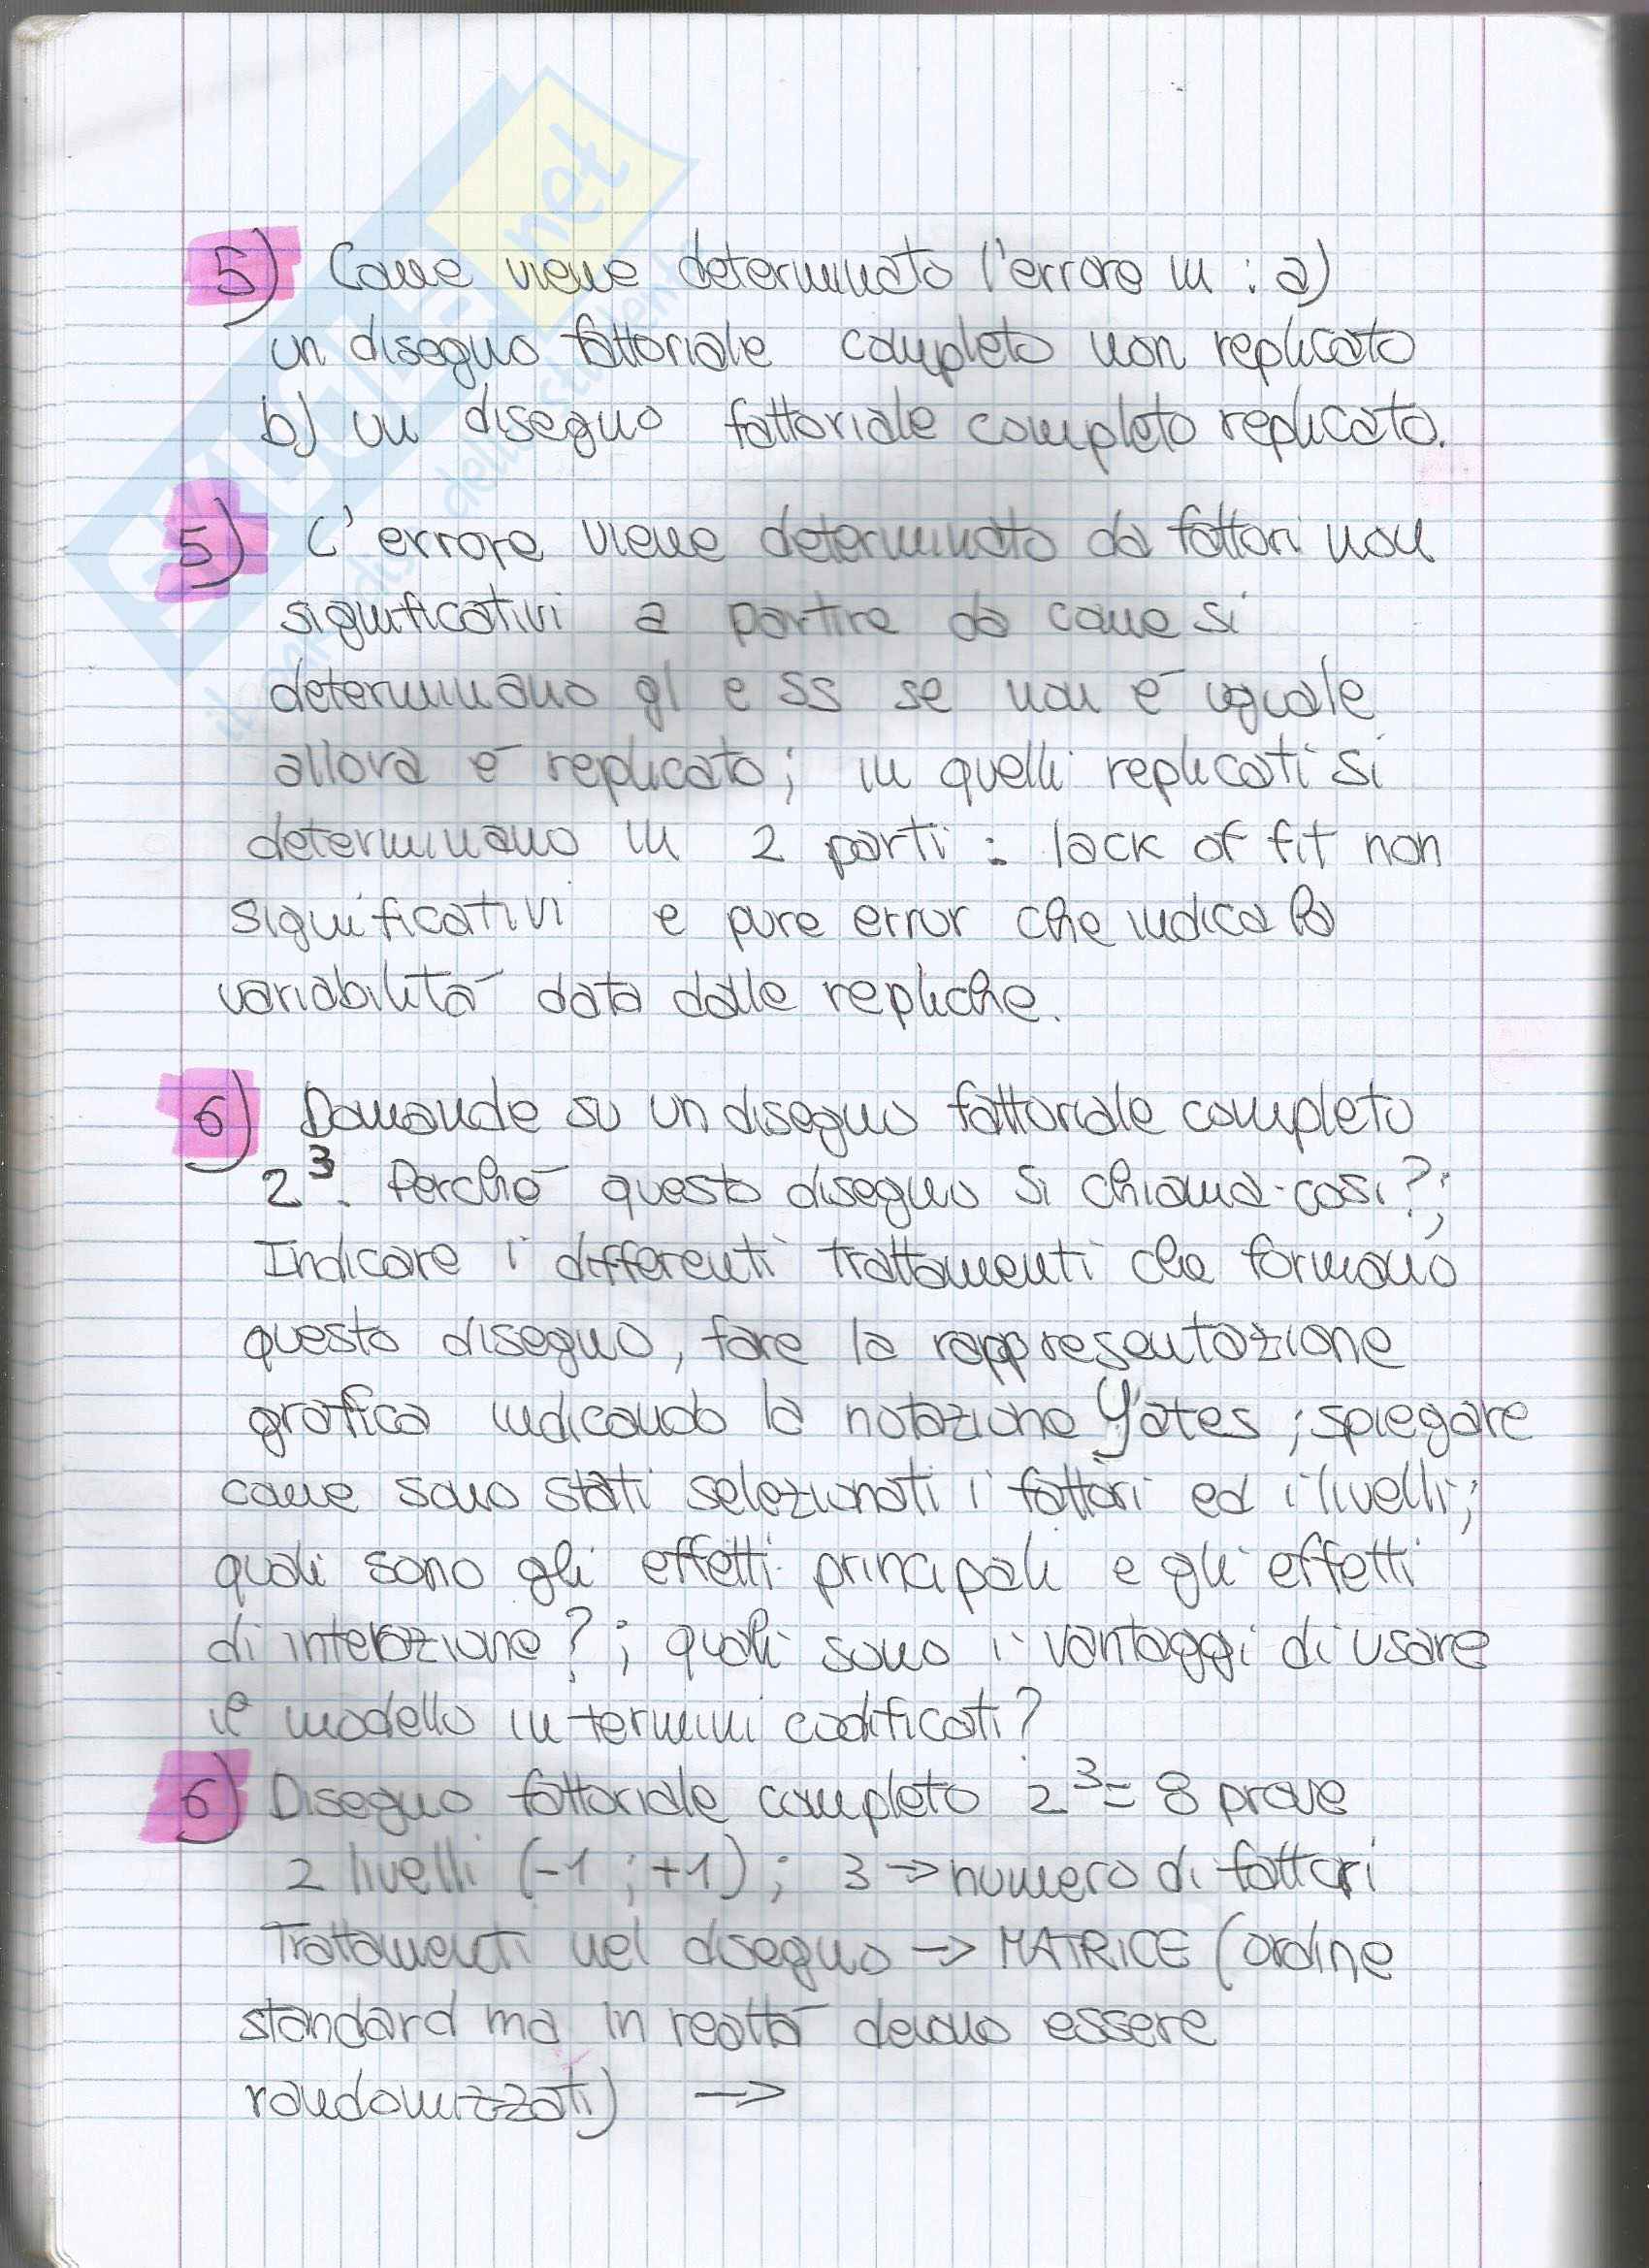 5) Come viene determinato l'errore in : a)
un disegno fattoriale completo non replicato
b) un disegno fattoriale completo replicato.
5) L'errore viene determinato da fattori non
significativi a partire da come si
determinano gl e SS se non è uguale
allora è replicato; in quelli replicati si
determinano in 2 parti : lack of fit non
significativi e pure error che indica la
variabilità data dalle repliche.
6) Domande su un disegno fattoriale completo
2³. Perché questo disegno si chiama così?;
Indicare i differenti trattamenti che formano
questo disegno, fare la rappresentazione
grafica indicando la notazione Yates ; spiegare
come sono stati selezionati i fattori ed i livelli;
quali sono gli effetti principali e gli effetti
di interazione? ; quali sono i vantaggi di usare
il modello in termini codificati?
6) Disegno fattoriale completo 2³= 8 prove
2 livelli (-1 ; +1) ; 3 → numero di fattori
Trattamenti nel disegno → MATRICE (ordine
standard ma in realtà devono essere
randomizzati) →